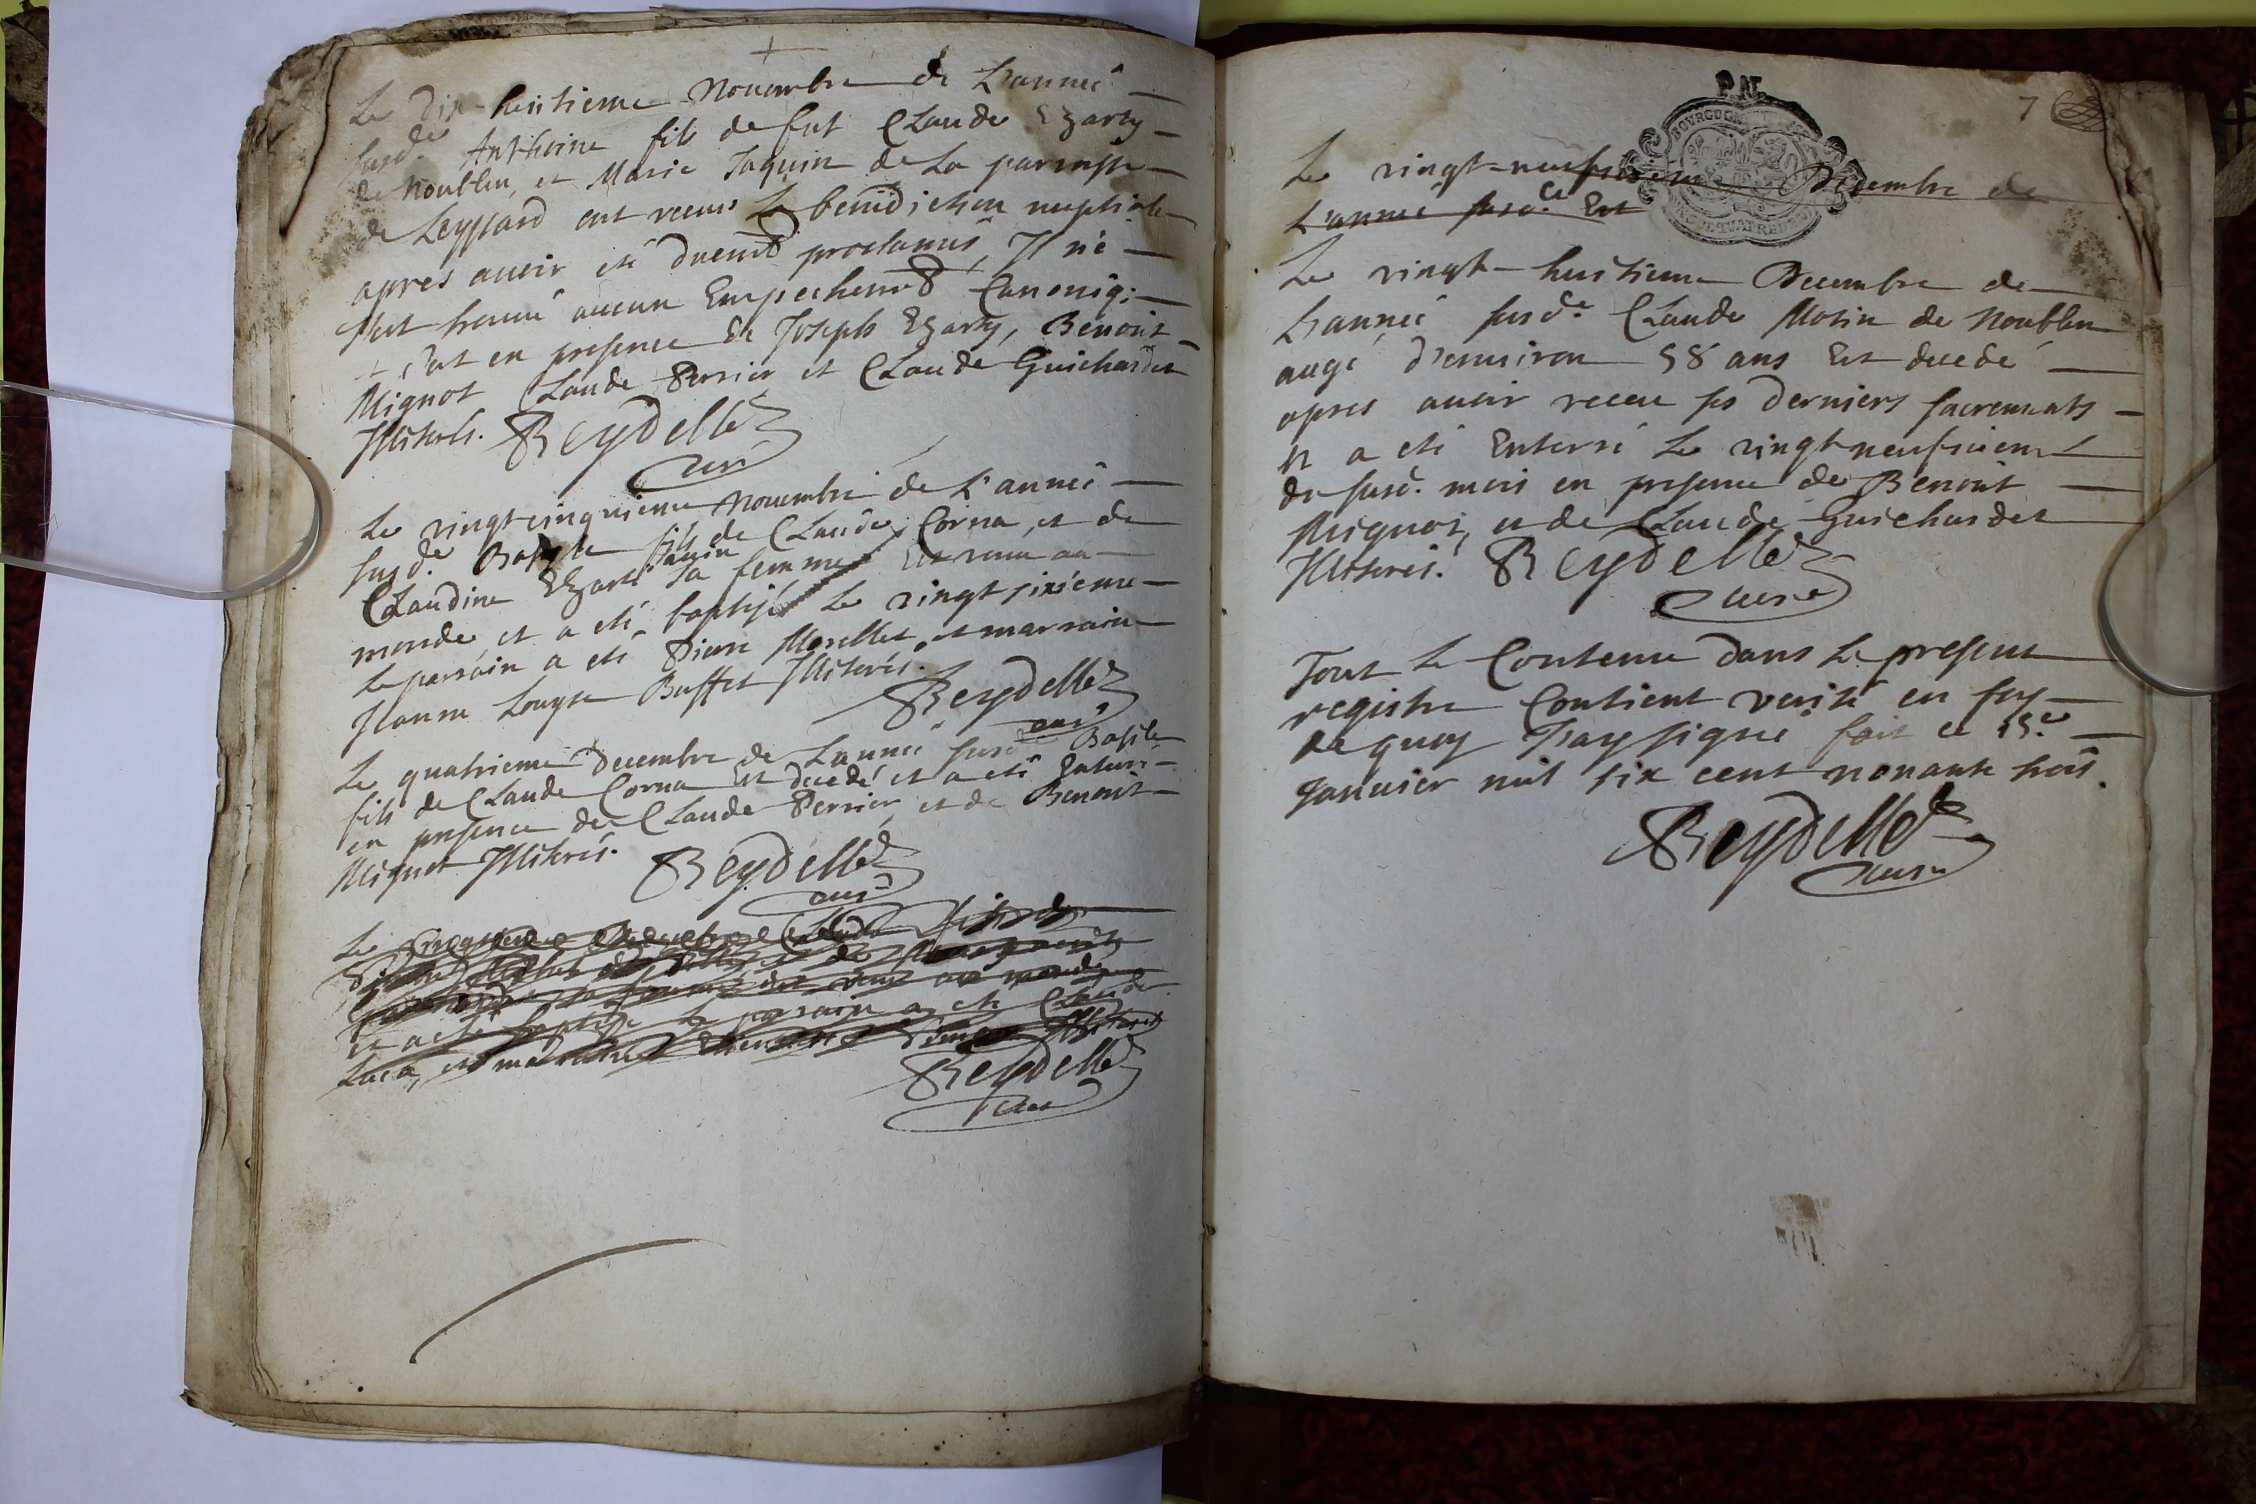 Le Dix-huitieme Novembre de L'année
susd.e Anthoine fils de fut Claude Ezarty
de Noublen, et Marie Jaquin de La parroisse
de Leyssard ont receus La benediction nuptiale
apres avoir été duem.t proclamés, Il ne
s'est trouvé aucun Empechem.t Canoniq;
+ c'est en presence de Joseph Ezarty, Benoit
Mignot Claude Perrier et Claude Guichardet
Illiterés. Reydellet
curé
Le vingt-cinquieme Novembre de L'année
susd.e Basyle fils de Claude Corna, et de
Claudine Ezarti sa femme Est venu au
monde et a eté baptisé Le vingt sixieme
Le parrain a eté Pierre Morellet et marraine
Jeanne Louyse Buffet Illiterés.
Reydellet
curé
Le quatrieme Decembre de L'année susd.e Basile
fils de Claude Corna Est decedé et a eté Enterré
en presence de Claude Perrier, et de Benoit
Mignot Illiterés. Reydellet
curé
Le Decembre Claude fils de
et de
sa femme Est venu au monde
et a eté baptisé Le parrain a eté Claude
Luca, et marraine Illiterés
Reydellet
curé
P.AT.
BOURGOGNE
7
Le vingt-neufvieme Decembre de
L'année susd.e Est
Le vingt-huitieme Decembre de
L'année susd.e Claude Morin de Noublen
augé d'environ 58 ans Est decedé
apres avoir receu ses derniers sacrements
et a eté Enterré Le vingt-neufvieme
du susd. mois en presence de Benoit
Mignot, et de Claude Guichardet
Illiterés. Reydellet
curé
Tout Le Contenu dans Le present
registre Contient verité en foy
de quoy J'ay signé fait ce 15.e
Janvier mil six cent nonante trois.
Reydellet
curé